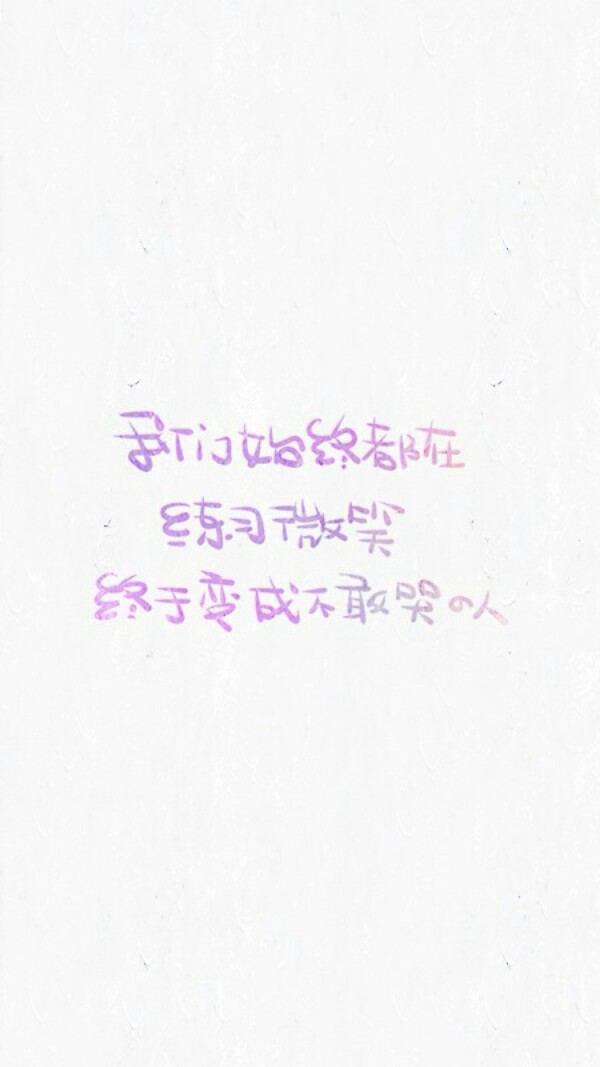 我们始终都在
练习微笑
终于变成不敢哭の人